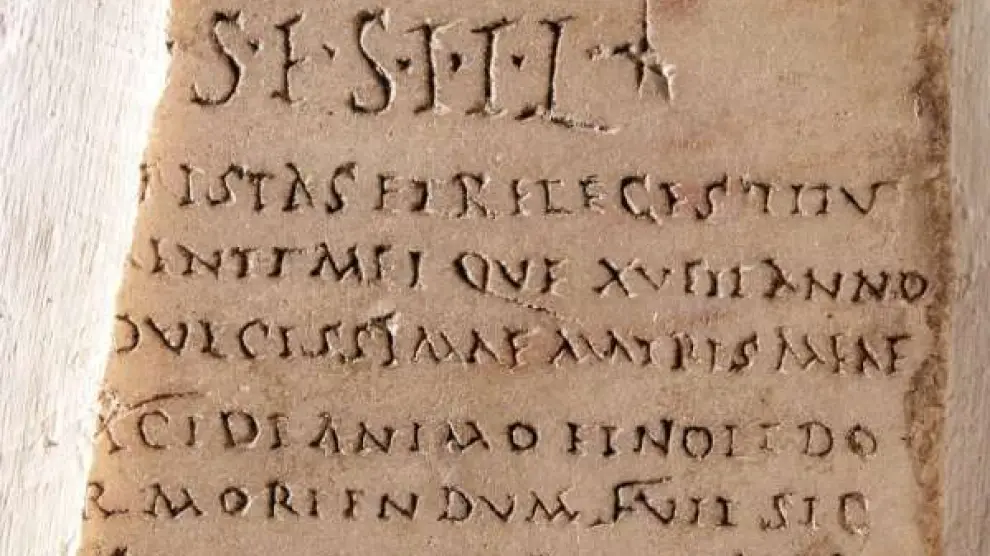 S·E·S·T·T·L
ISTAS ET RELEGES TITV
MEI QVE XVIII ANNO
DVLCISSIMAE MATRIS MEAE
XCIDE ANIMO ET NOLI DO
R MORIENDVM FVIT SIC